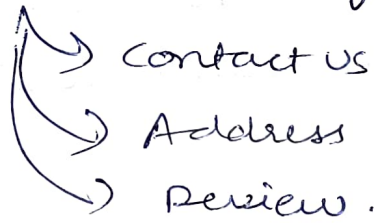 Contact us
Address
Review.